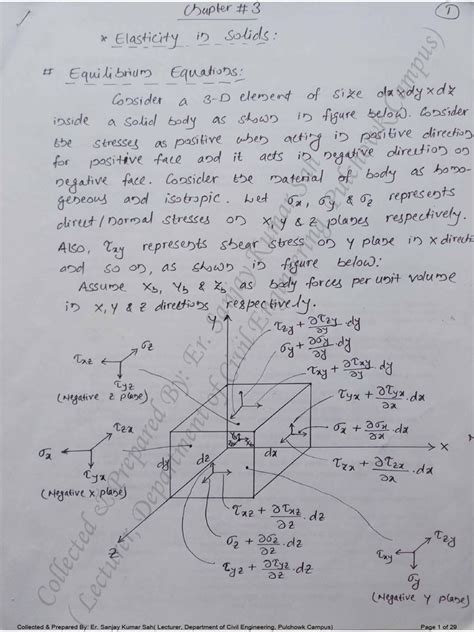 Chapter # 3
1
* Elasticity in Solids:
# Equilibrium Equations:
Consider a 3-D element of size dx×dy×dz
inside a solid body as shown in figure below. Consider
the stresses as positive when acting in positive direction
for positive face and it acts in negative direction on
negative face. Consider the material of body as homo-
geneous and isotropic. Let σx, σy, & σz represents
direct/normal stresses on x, y & z planes respectively.
Also, τxy represents shear stress on y plane in x direction
and so on, as shown in figure below:
Assume Xb, Yb & Zb as body forces per unit volume
in x, y & z directions respectively.
Y
τzy + ∂τzy/∂y . dy
σy + ∂σy/∂y . dy
τxy + ∂τxy/∂y . dy
τxz
σz
τyz
(Negative z plane)
τyx + ∂τyx/∂x . dx
σx + ∂σx/∂x . dx
τzx + ∂τzx/∂x . dx
X
τzx
σx
τyx
(Negative x plane)
dy
dz
dx
τxz + ∂τxz/∂z . dz
σz + ∂σz/∂z . dz
τyz + ∂τyz/∂z . dz
Z
τzy
τxy
σy
(Negative y plane)
Collected & Prepared By: Er. Sanjay Kumar Sah
( Lecturer, Department of Civil Engineering, Pulchowk Campus)
Collected & Prepared By: Er. Sanjay Kumar Sah( Lecturer, Department of Civil Engineering, Pulchowk Campus)
Page 1 of 29